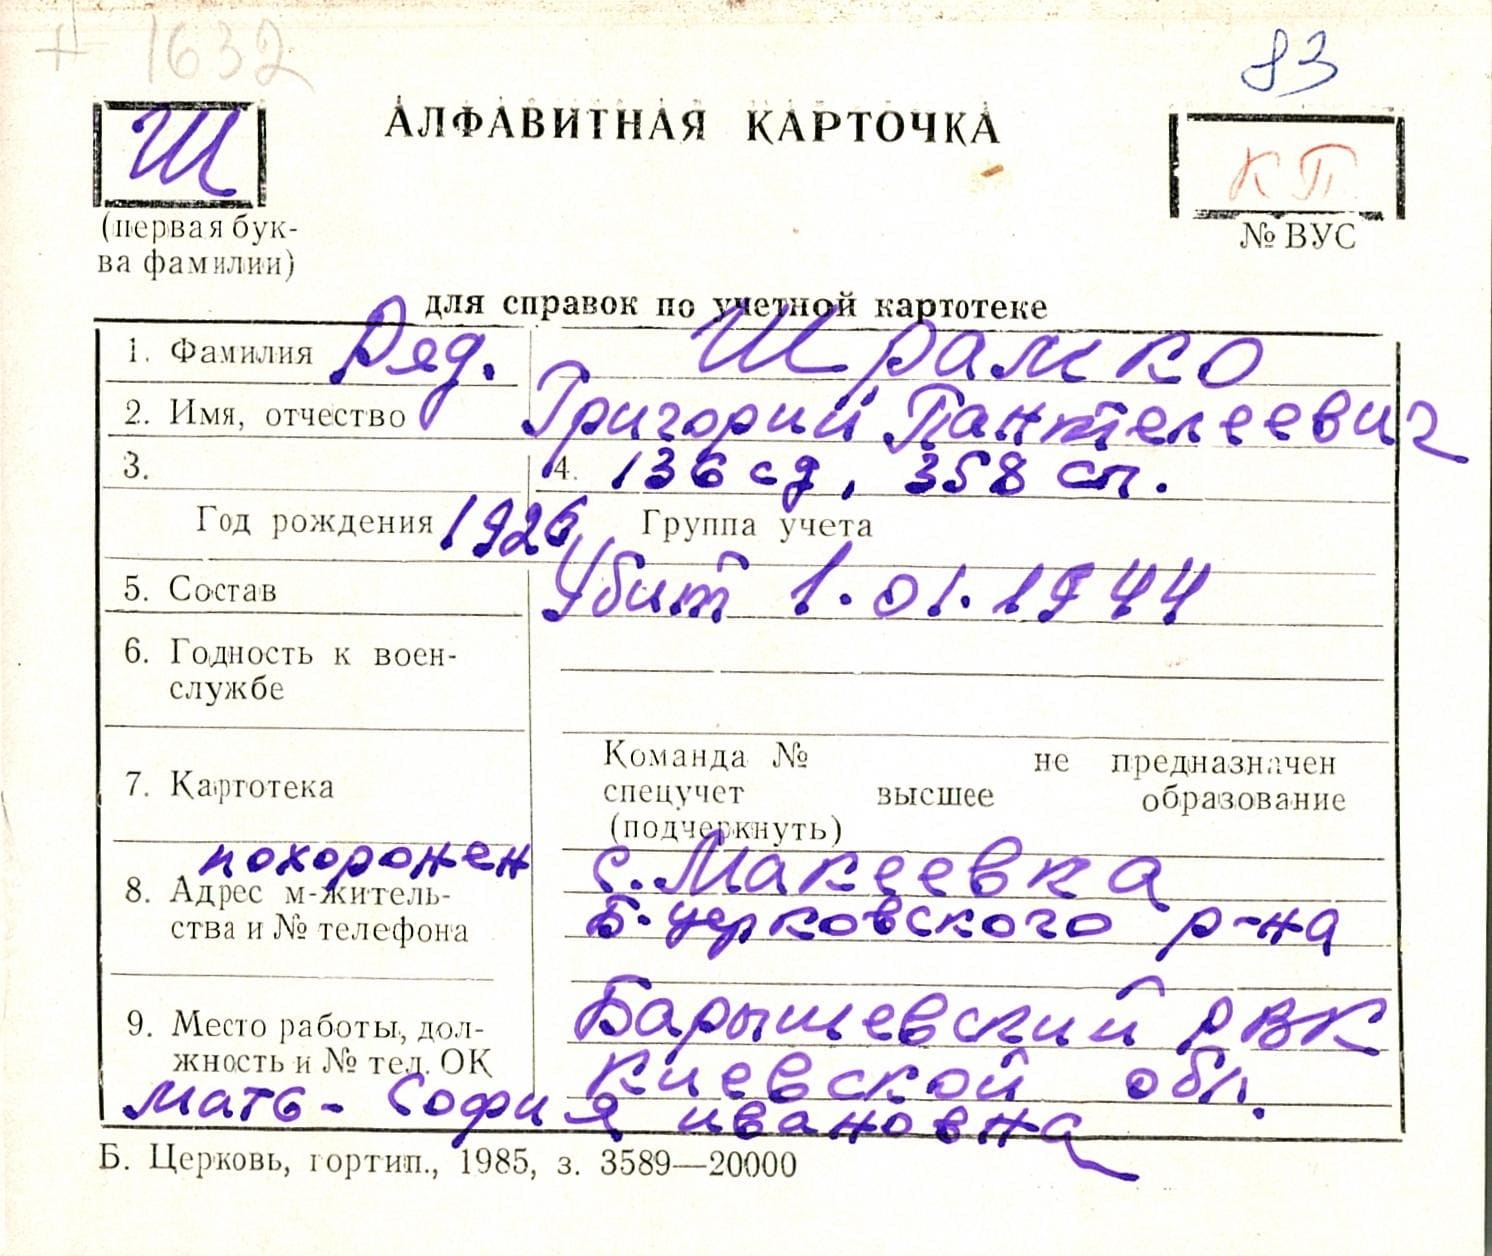 1632
83
Ш
АЛФАВИТНАЯ КАРТОЧКА
КП
(первая бук-
ва фамилии)
№ ВУС
для справок по учетной картотеке
1. Фамилия Ряд. Шрамко
2. Имя, отчество Григорий Пантелеевич
3. 4. 136 сд, 358 сп.
Год рождения 1926 Группа учета
5. Состав Убит 1.01.1944
6. Годность к воен-
службе
7. Картотека
Команда № не предназначен
спецучет высшее образование
(подчеркнуть)
похоронен с. Макеевка
8. Адрес м-житель-
ства и № телефона
Б-церковского р-на
9. Место работы, дол-
жность и № тел. ОК
Барышевский РВК
Киевской обл.
мать - София Ивановна
Б. Церковь, гортип., 1985, з. 3589—20000